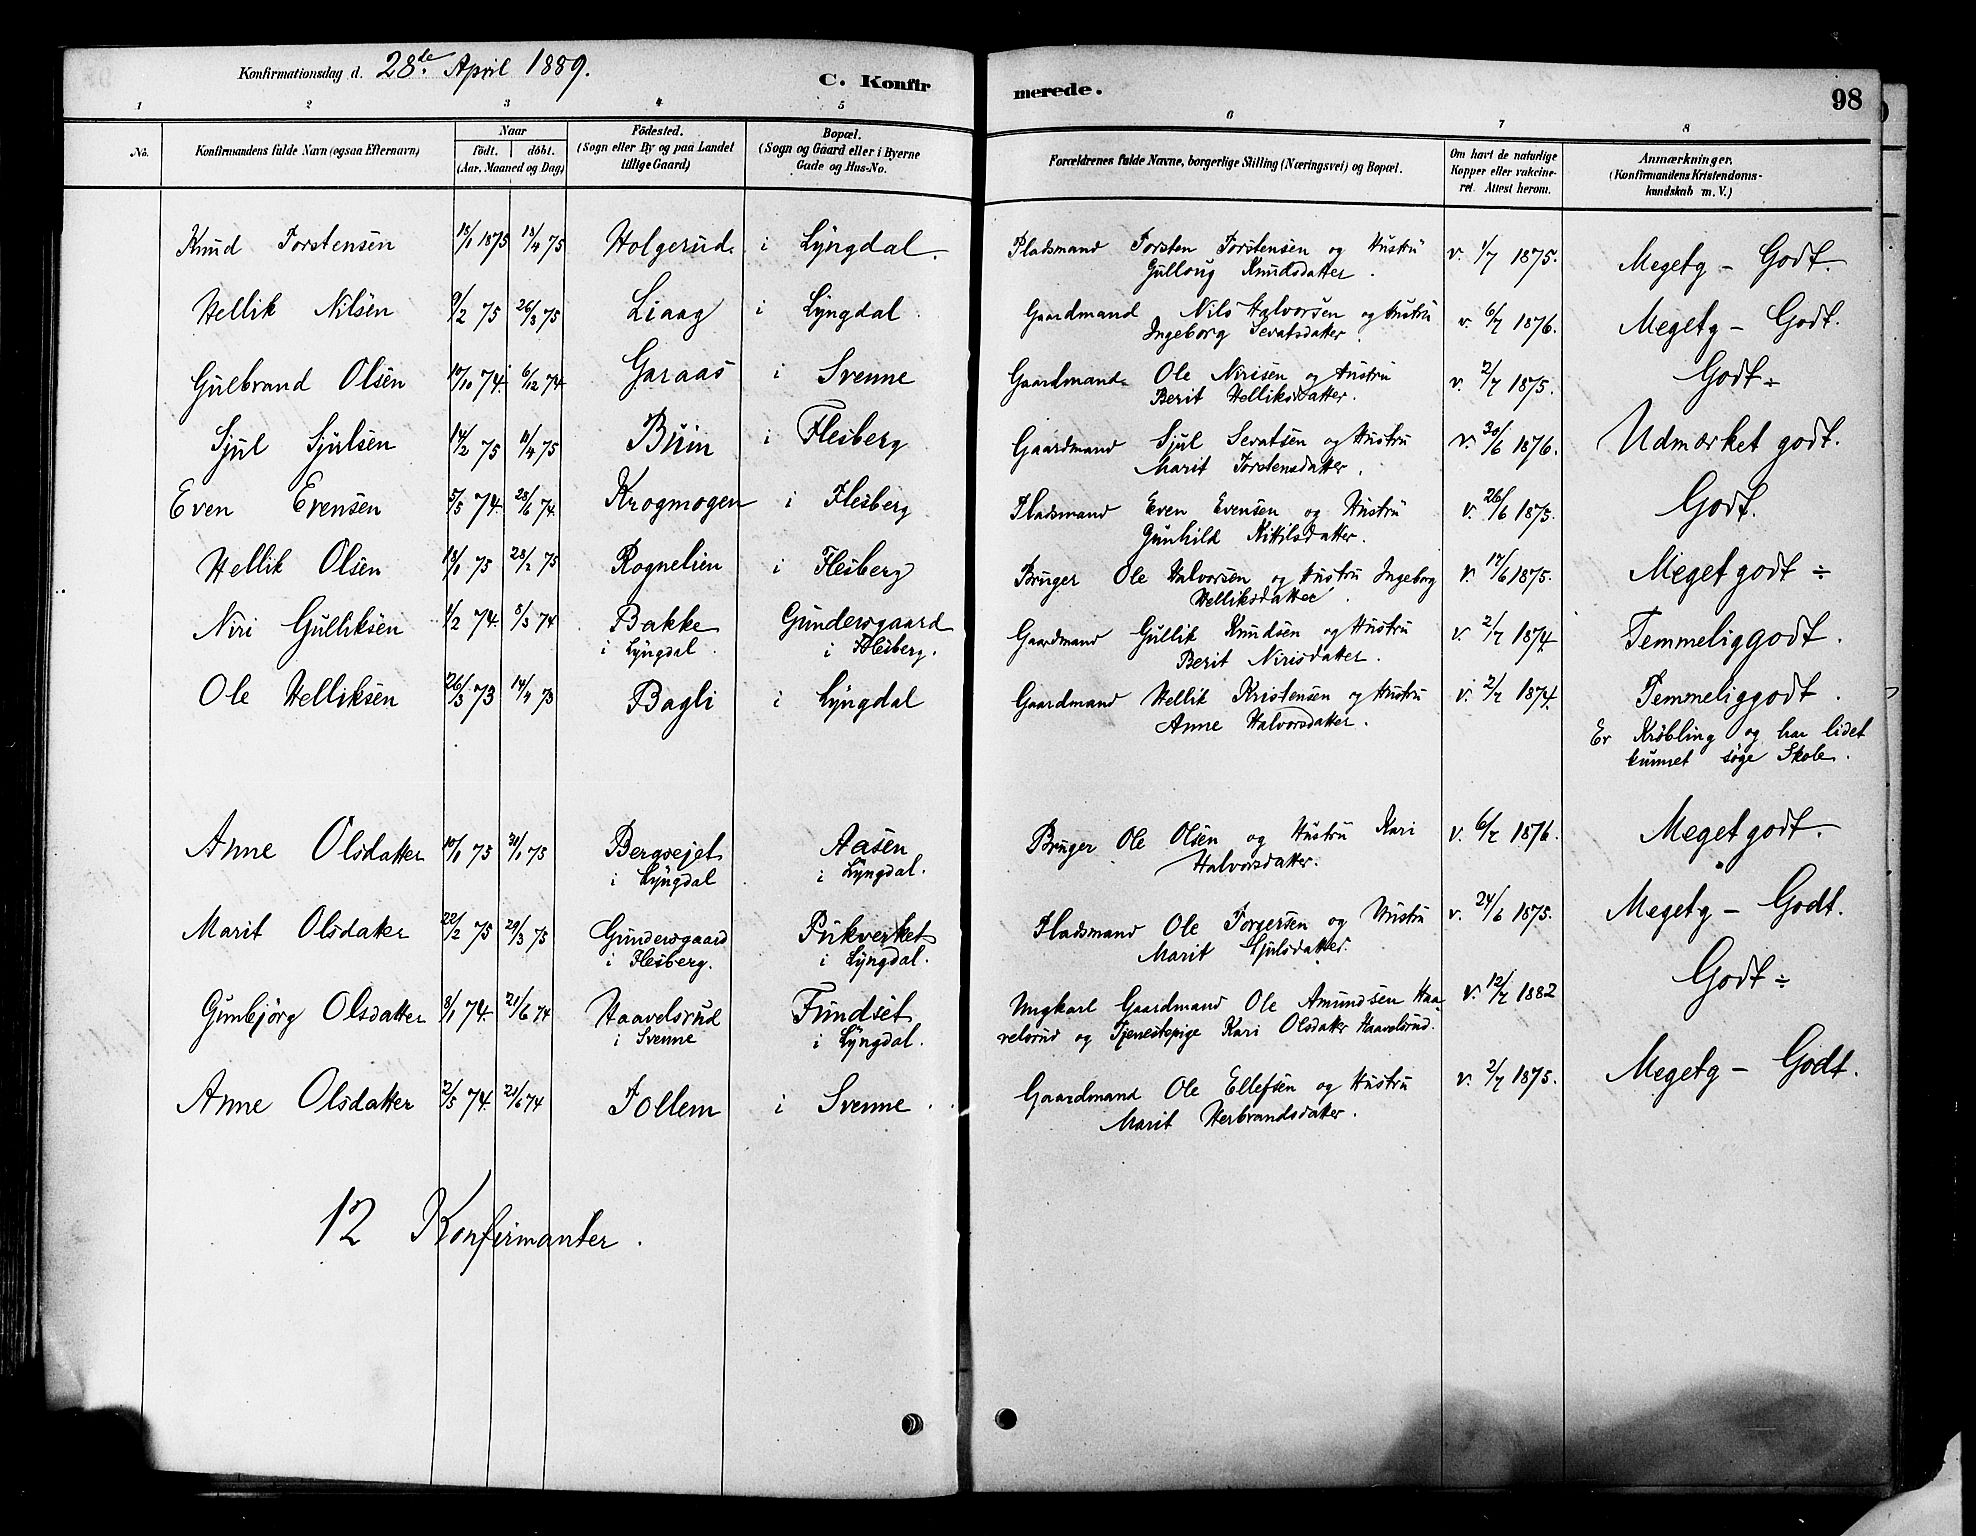 Konfirmationsdag d. 28de April 1889.
C. Konfir
merede.
98
1 2 3 4 5 6 7 8
No.
Konfirmandens fulde Navn (ogsaa Efternavn)
Naar
födt. döbt.
(Aar, Maaned og Dag)
Födested.
(Sogn eller By og paa Landet
tillige Gaard)
Bopæl.
(Sogn og Gaard eller i Byerne
Gade og Hus-No.
Forældrenes fulde Navne, borgerlige Stilling (Næringsvei) og Bopæl.
Om havt de naturlige
Kopper eller vakcine-
ret. Attest herom.
Anmærkninger.
(Konfirmandens Kristendoms-
kundskab m. V.)
Knud Torstensen 18/1 1875 18/4 75 Holgerud i Lyngdal. Pladsmand Torsten Torstensen og Hustru v. 1/7 1875. Megetg - Godt.
Gulloug Knudsdatter.
Hellik Nilsen 9/2 75 26/3 75 Liaag i Lyngdal. Gaardmand Nils Halvorsen og Hustru v. 6/7 1876. Megetg - Godt.
Ingeborg Sevatsdatter.
Gulbrand Olsen 10/10 74. 6/12 74. Garaas i Svenne Gaardmand Ole Nirisen og Hustru v. 2/7 1875. Godt ÷
Berit Helliksdatter.
Sjul Sjulsen 14/2 75 11/4 75 Buin i Flesberg Gaardmand Sjul Sevatsen og Hustru v. 30/6 1876. Udmærket godt.
Marit Torstensdatter.
Even Evensen 5/5 74. 28/6 74. Krogmogen i Flesberg Pladsmand Even Evensen og Hustru v. 26/6 1875. Godt.
Gunhild Kittilsdatter.
Hellik Olsen 18/1 75 28/2 75 Rognelien i Flesberg Bruger Ole Halvorsen og Hustru Ingeborg v. 17/6 1875. Meget godt ÷
Helliksdatter.
Niri Gulliksen 1/2 74. 8/3 74 Bakke Gundersgaard Gaardmand Gullik Knudsen og Hustru v. 2/7 1874. Temmeliggodt.
i Lyngdal. i Flesberg. Berit Nirisdatter.
Ole Helliksen 26/3 73 14/4 73 Bagli i Lyngdal Gaardmand Hellik Kristensen og Hustru v. 2/7 1874. Temmeliggodt.
Anne Halvorsdatter.
Er Krøbling og har lidet
kunnet søge Skole.
Anne Olsdatter 10/1 75 31/1 75 Bergsejet Aasen Bruger Ole Olsen og Hustru Kari v. 6/7 1876. Meget godt.
i Lyngdal i Lyngdal. Halvorsdatter.
Marit Olsdatter 22/2 75 29/3 75 Gundersgaard Pukverket Pladsmand Ole Torgersen og Hustru v. 24/6 1875. Megetg - Godt.
i Flesberg. i Lyngdal. Marit Sjulsdatter.
Gunbjørg Olsdatter 8/1 74. 21/6 74 Haavelsrud Fundset Ungkarl Gaardmand Ole Amundsen Haa v. 12/7 1882 Godt ÷
i Svenne i Lyngdal. velsrud og Tjenestepige Kari Olsdatter Haavelsrud.
Anne Olsdatter 2/5 74. 21/6 74 Tollem i Svenne. Gaardmand Ole Ellefsen og Hustru v. 2/7 1875. Megetg - Godt.
Marit Herbrandsdatter.
12 Konfirmanter.